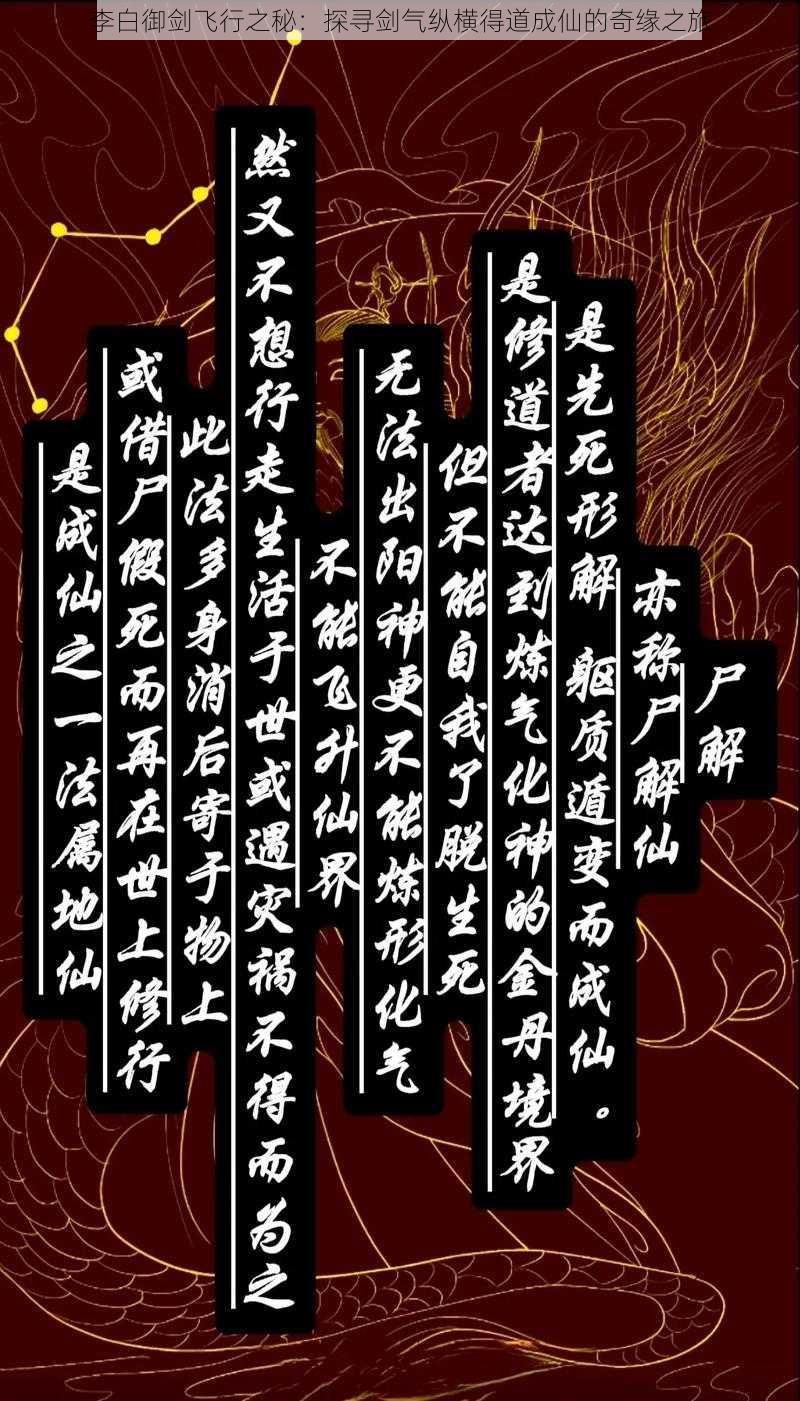 李白御剑飞行之秘：探寻剑气纵横得道成仙的奇缘之旅
尸解
亦称尸解仙
是先死形解 躯质遁变而成仙。
是修道者达到炼气化神的金丹境界
但不能自我了脱生死
无法出阳神更不能炼形化气
不能飞升仙界
然又不想行走生活于世或遇灾祸不得而为之
此法多身消后寄于物上
或借尸假死而再在世上修行
是成仙之一法属地仙